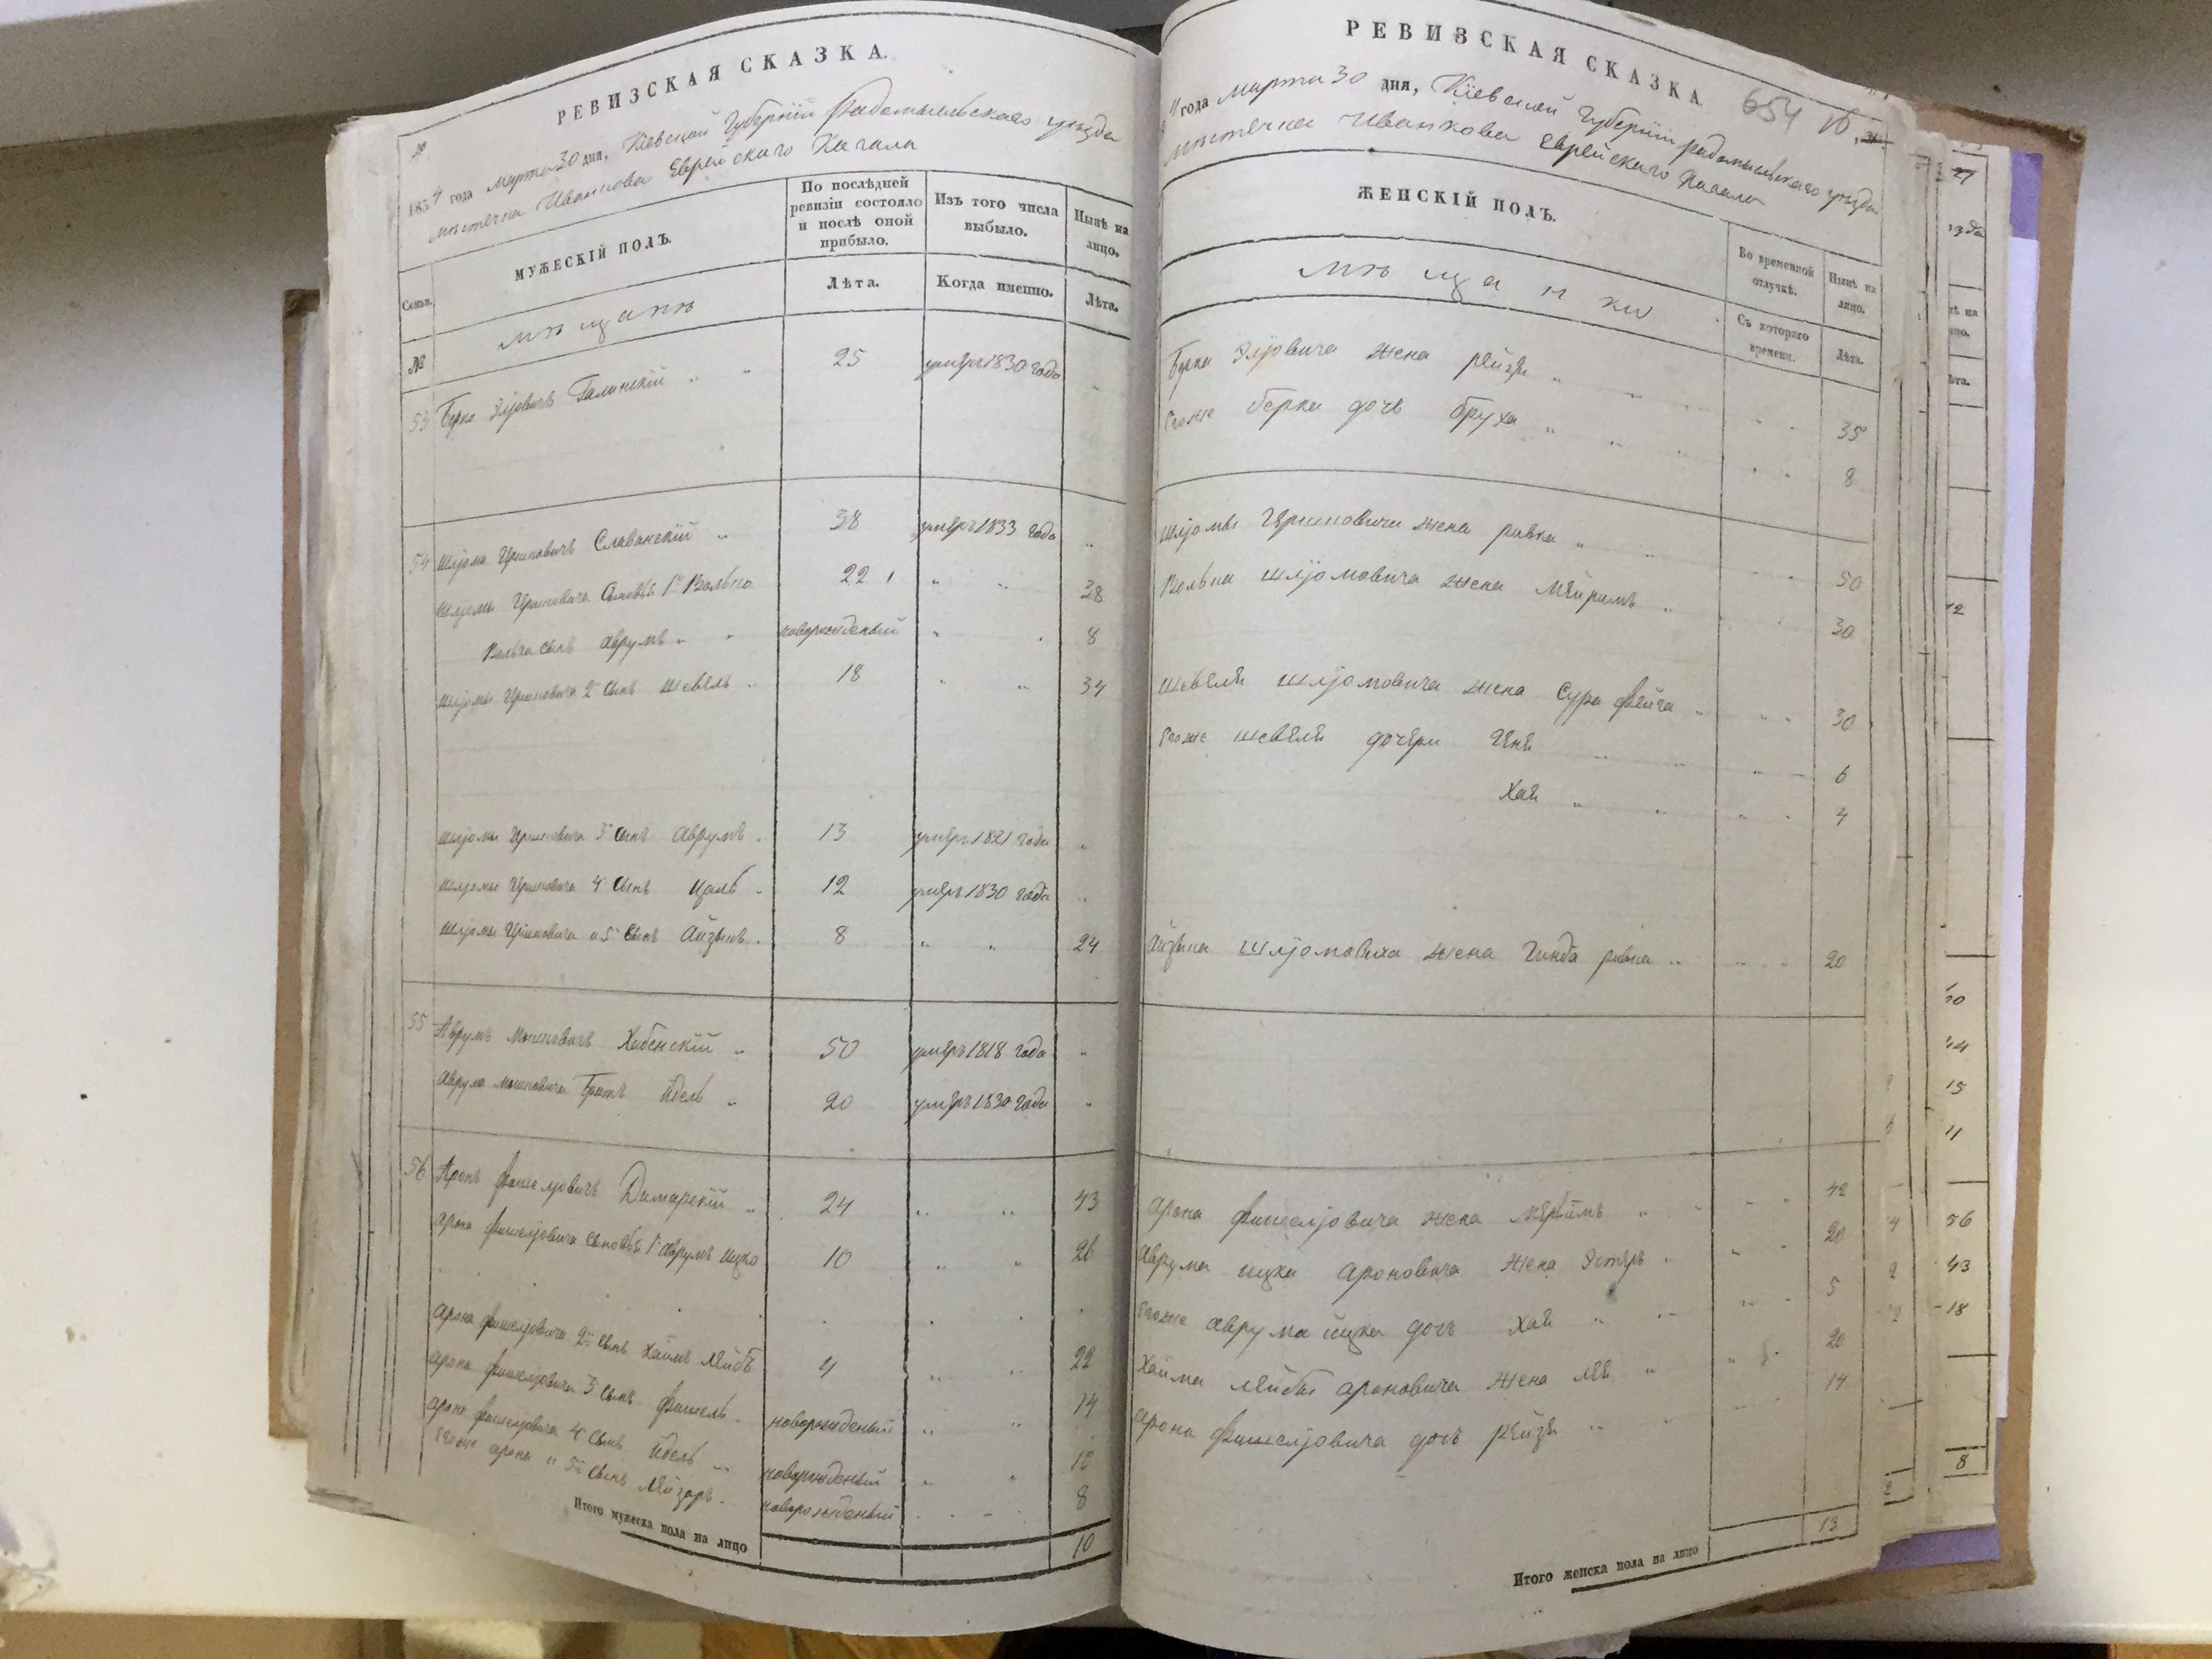 РЕВИЗСКАЯ СКАЗКА.
1834 года марта 30 дня, Кіевской Губерніи Радомысльскаго уезда
мѣстечка Иванкова Еврейскаго Кагала
Семьи.
МУЖЕСКІЙ ПОЛЪ.
По послѣдней ревизіи состояло и послѣ оной прибыло.
Изъ того числа выбыло.
Нынѣ на лицо.
№
мѣщанѣ
Лѣта.
Когда именно.
Лѣта.
53 Берко Элјовичъ Галинскій 25 умеръ 1830 года
54 Шлјома Гершковичъ Славанскій 38 умеръ 1833 года
Шлјомы Гершковича Сыновья 1й Волько 22 38
Волька сынъ Аврумъ новорожденый 8
Шлјомы Гершковича 2й сынъ Шевель 18 34
Шлјомы Гершковича 3й сынъ Аврумъ 13 умеръ 1821 года
Шлјомы Гершковича 4й сынъ 12 умеръ 1830 года
Шлјомы Гершковича 5й сынъ Айзыкъ 8 24
55 Аврумъ Мошковичъ Хабенскій 50 умеръ 1818 года
Аврума Мошковича братъ Идель 20 умеръ 1830 года
56 Аронъ Фишелјовичъ Димарскій 24 43
Арона Фишелјовича сыновья 1й Аврумъ Ицко 10 26
Арона Фишелјовича 2й сынъ Хаимъ Лейбъ 4 22
Арона Фишелјовича 3й сынъ Фишель новорожденый 14
Арона Фишелјовича 4й сынъ Идель новорожденый 10
Егоже Арона 5й сынъ Лейзоръ новорожденый 8
Итого мужеска пола на лицо 10
РЕВИЗСКАЯ СКАЗКА.
654
года марта 30 дня, Кіевской Губерніи радомысльскаго уезда
мѣстечка Иванкова Еврейскаго Кагала
ЖЕНСКІЙ ПОЛЪ.
Во временной отлучкѣ.
Нынѣ на лицо.
мѣщанки
Съ котораго времени.
Лѣта.
Берка Элјовича жена рейзя 35
Егоже берка дочь бруха 8
Шлјомы Гершковича жена ривка 50
Волька Шлјомовича жена Мейримъ 30
Шевеля Шлјомовича жена Сура фейга 30
Егоже шевеля дочери Геня 6
Хая 4
Айзыка Шлјомовича жена Гинда ривка 20
Арона Фишелјовича жена 42
Аврума ицка Ароновича жена Эстеръ 20
Егоже аврума ицка дочь Хая 5
Хаима Лейбы ароновича жена Лея 20
Арона Фишелјовича дочь рейзя 14
Итого женска пола на лицо 13